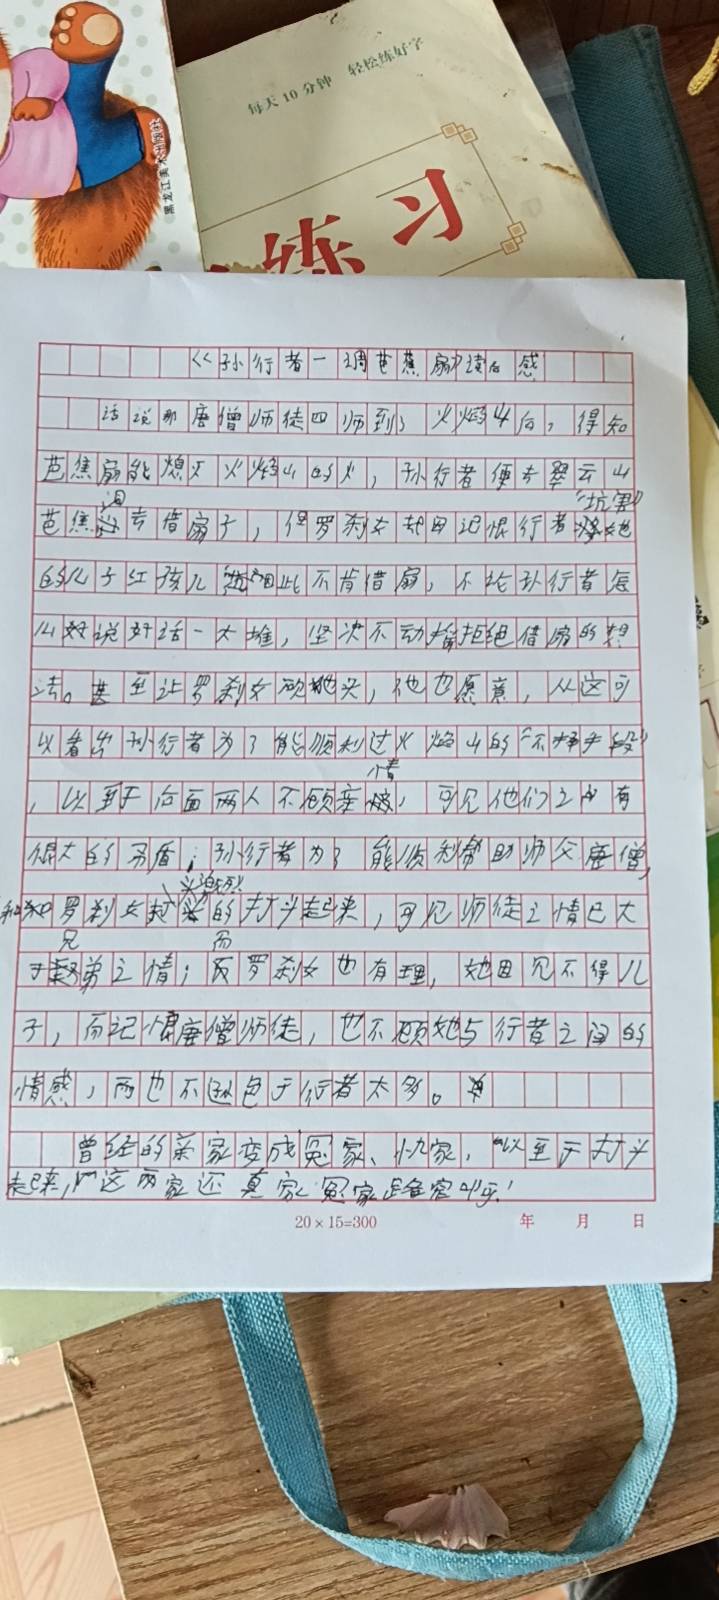 每天10分钟 轻松练好字
练习
黑龙江美术出版社
《孙行者一调芭蕉扇》读后感
话说那唐僧师徒四师到了火焰山后,得知
芭焦扇能熄灭火焰山的火,孙行者便去翠云山
芭焦洞去借扇子,但罗刹女却因记恨行者"坑害"她
的儿子红孩儿 因此不肯借扇,不论孙行者怎
么好说好话一大堆,坚决不动摇拒绝借扇的想
法。甚至让罗刹女砍她头,他也愿意,从这可
以看出孙行者为了能顺利过火焰山的"不择手段"
,以至于后面两人不顾亲情,可见他们之中有
很大的矛盾;孙行者为了能顺利帮助师父唐僧,
和罗刹女激烈的打斗起来,可见师徒之情已大
于兄弟之情;而罗刹女也有理,她因见不得儿
子,而记恨唐僧师徒,也不顾她与行者之间的
情感,而也不逊色于行者太多。
曾经的亲家变成冤家、仇家,以至于打斗
起来,这两家还真家冤家路窄呀!
20×15=300 年 月 日